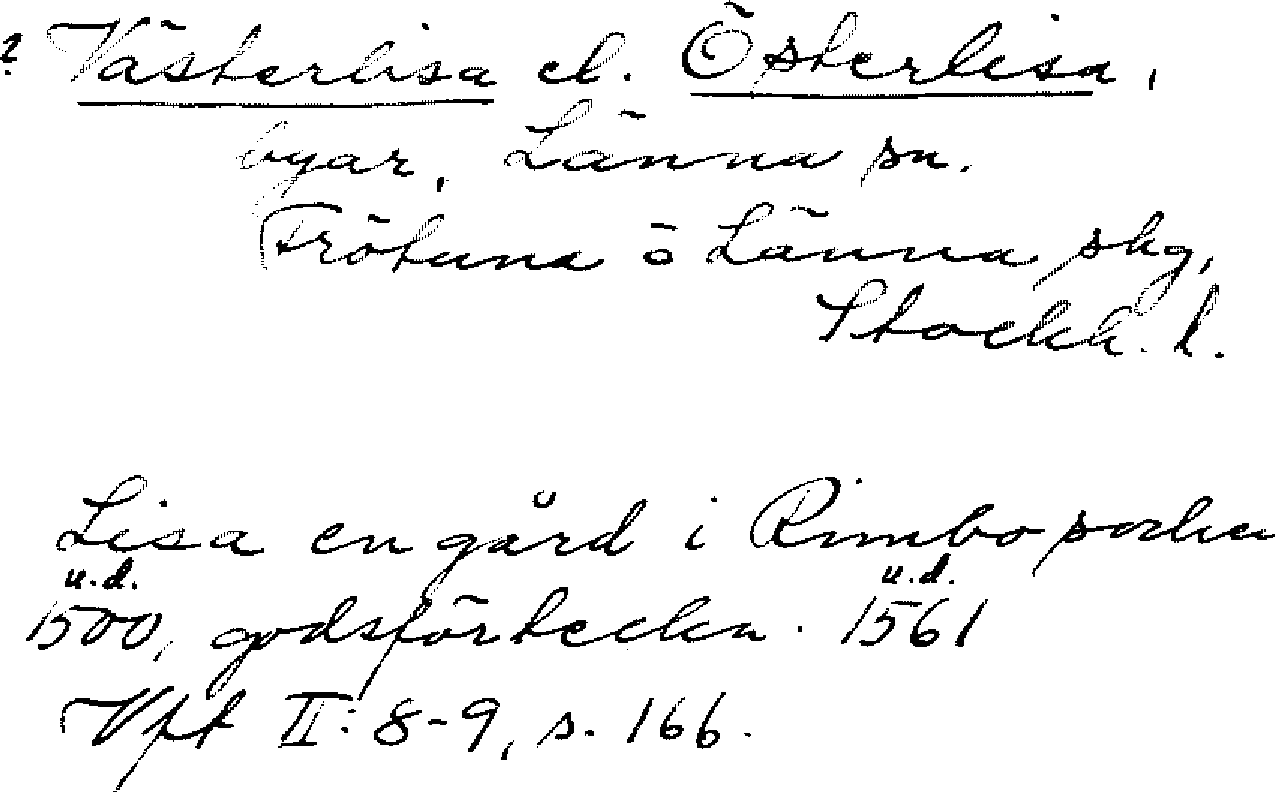 ? Västerlisa el. Österlisa,
byar, Länna sn.
Frötuna o Länna skg,
Stockh. l.
Lisa en gård i Rimbo socken
u.d. u.d.
1500, godsförteckn. 1561
Vft II: 8-9, s. 166.